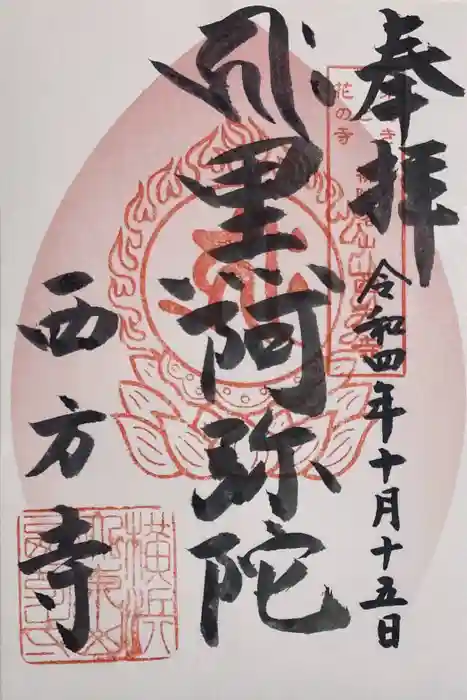 奉拝
令和四年十月十五日
花の寺
黒阿弥陀
西方寺
横浜